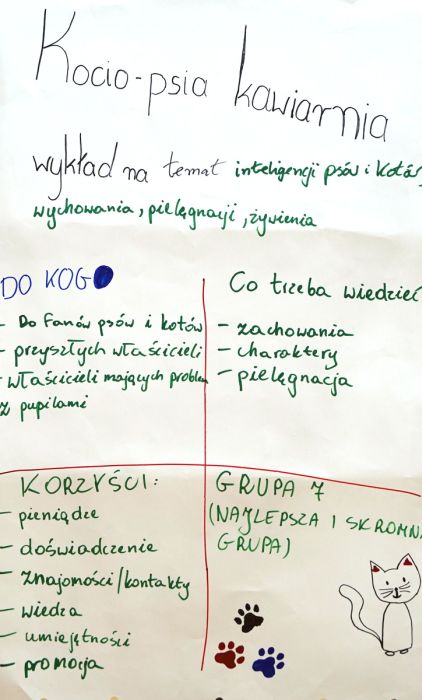 Kocio-psia kawiarnia
wykład na temat inteligencji psów i kotów,
wychowania, pielęgnacji, żywienia
DO KOGO
- Do fanów psów i kotów
- przyszłych właścicieli
- właścicieli mających problem
z pupilami
Co trzeba wiedzieć
- zachowania
- charaktery
- pielęgnacja
KORZYŚCI:
- pieniądze
- doświadczenie
- znajomości/kontakty
- wiedza
- umiejętności
- promocja
GRUPA 7
(NAJLEPSZA I SKROMNA
GRUPA)